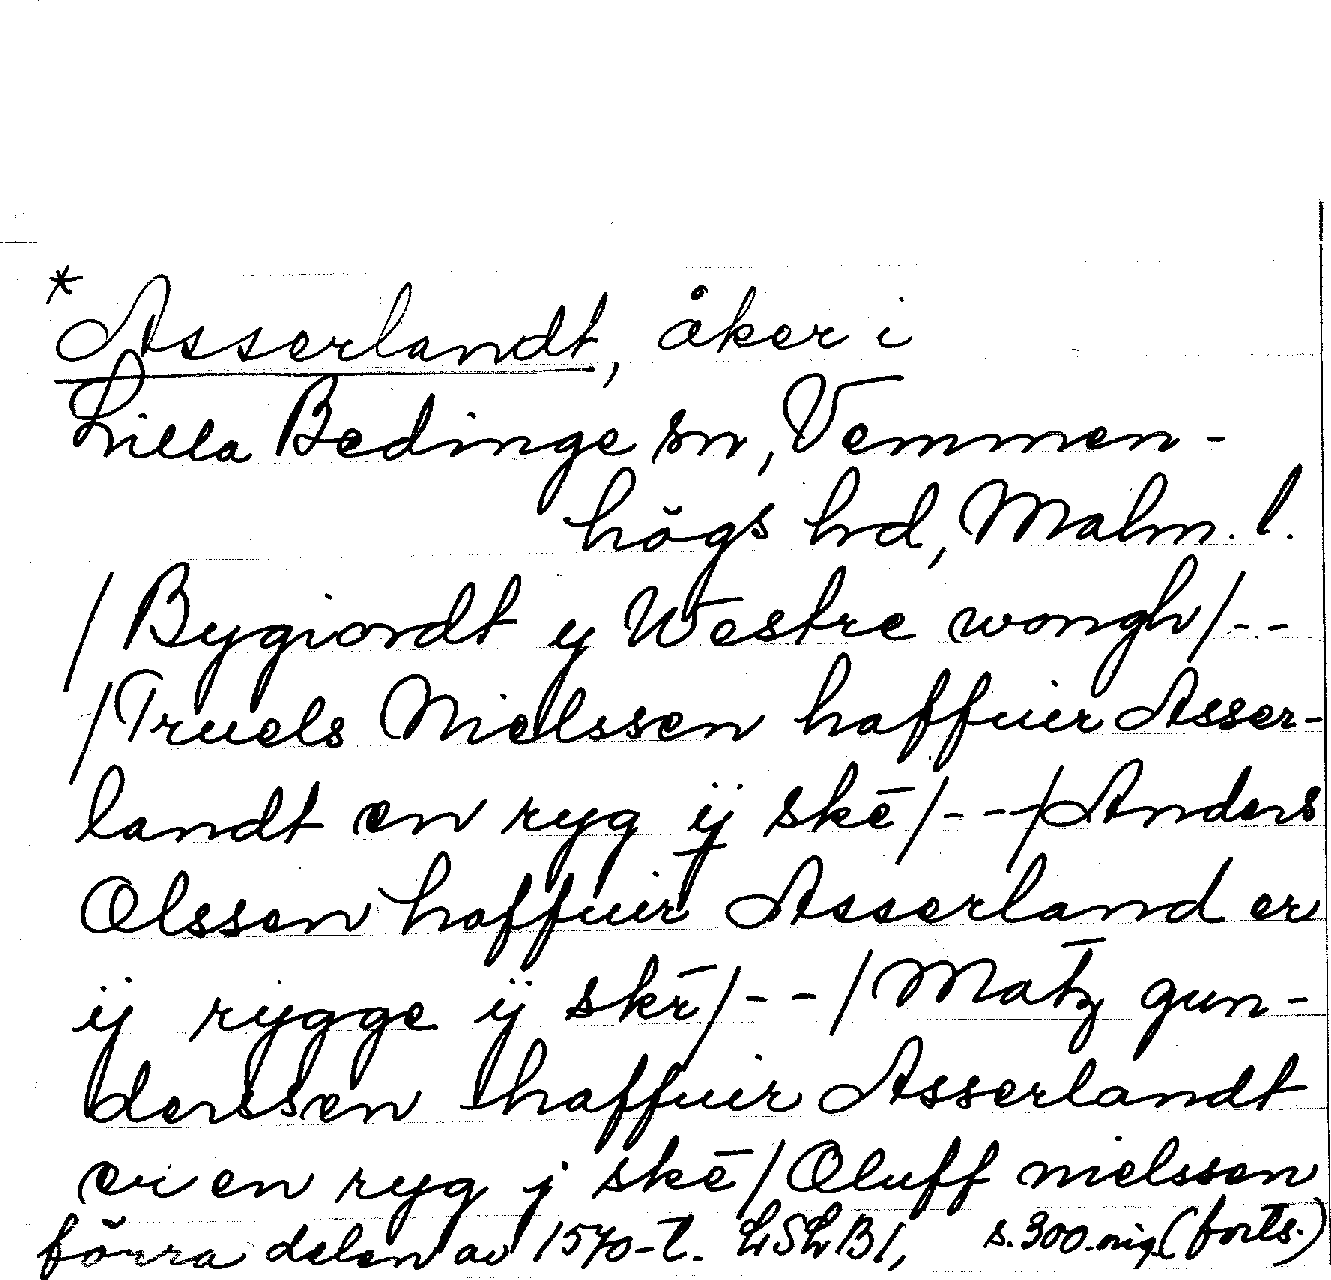 *
Asserlandt, åker i
Lilla Bedinge sn, Vemmen-
högs hd, Malm. l.
/Bygiordt y Westre wongh/--
/Truels Nielssen haffuer Asser-
landt en ryg ij skē/--/Anders
Olssen haffuir Asserland er
ij rygge ij skē/--/Matz gun-
derssen haffuir Asserlandt
er en ryg j skē/Oluff nielssen
förra delen av 1570-t. LSLB1, s. 300. (forts.)